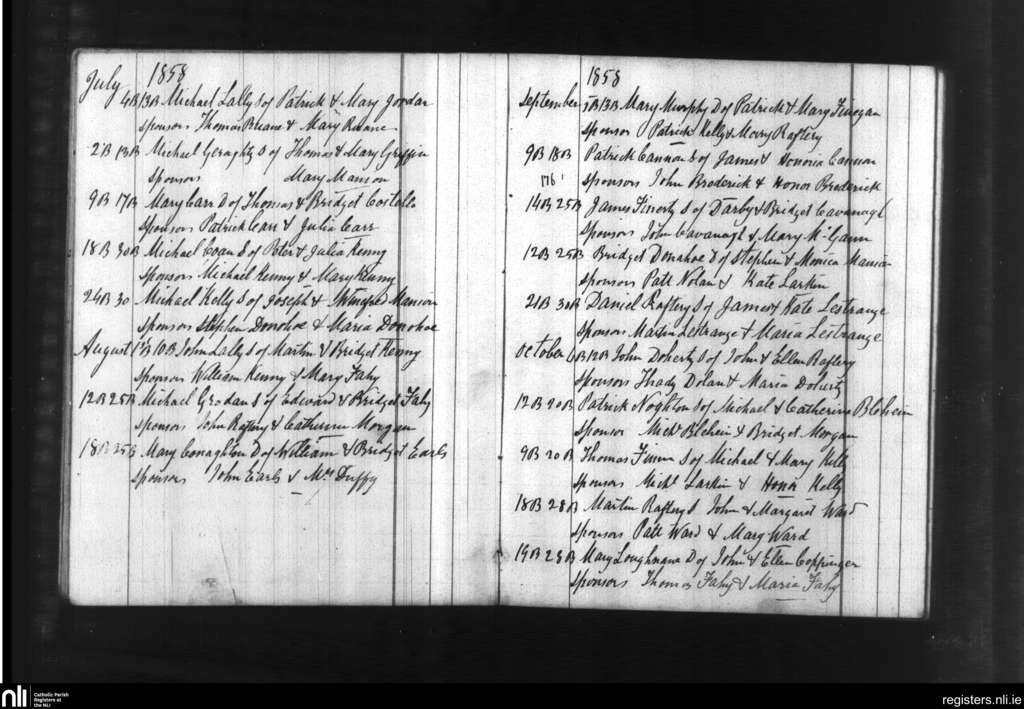 July 1858
4B 13B Michael Lally S of Patrick & Mary Jordan
Sponsors Thomas Ruane & Mary Ruane
2B 13B Michael Geraghty S of Thomas & Mary Griffin
Sponsors Mary Manion
9B 17B Mary Carr D of Thomas & Bridget Costello
Sponsors Patrick Carr & Julia Carr
18B 30B Michael Coan S of Peter & Julia Kenny
Sponsors Michael Kenny & Mary Kenny
24B 30 Michael Kelly S of Joseph & Winefred Manion
Sponsors Stephen Donohoe & Maria Donohoe
August 1B 10B John Lally S of Martin & Bridget Kenny
Sponsors William Kenny & Mary Fahy
12B 25B Michael Grodan S of Edward & Bridget Fahy
Sponsors John Raftery & Catherine Morgan
18B 25B Mary Conaghton D of William & Bridget Earls
Sponsors John Earls & Mrs Duffy
1858
September 5B 13B Mary Murphy D of Patrick & Mary Finegan
Sponsor Patrick Kelly & Mary Raftery
9B 18B Patrick Cannon S of James & Honoria Cannon
176 Sponsors John Broderick & Honor Broderick
14B 25B James Finerty S of Darby & Bridget Cavanagh
Sponsors John Cavanagh & Mary McGann
12B 25B Bridget Donahoe D of Stephen & Monica Manion
Sponsors Patt Nolan & Kate Larkin
21B 30B Daniel Raftery S of James & Kate Lestrange
Sponsors Martin Lestrange & Maria Lestrange
October 6B 12B John Doherty S of John & Ellen Raftery
Sponsors Thady Dolan & Maria Doherty
12B 20B Patrick Noghton S of Michael & Catherine Blehein
Sponsor Michl Blehein & Bridget Morgan
9B 20B Thomas Finn S of Michael & Mary Kelly
Sponsors Michl Larkin & Honor Kelly
18B 28B Martin Raftery S John & Margaret Ward
Sponsors Patt Ward & Mary Ward
19B 28B Mary Loughnane D of John & Ellen Coppinger
Sponsors Thomas Fahy & Maria Fahy
nli Catholic Parish
Registers at
the NLI
registers.nli.ie